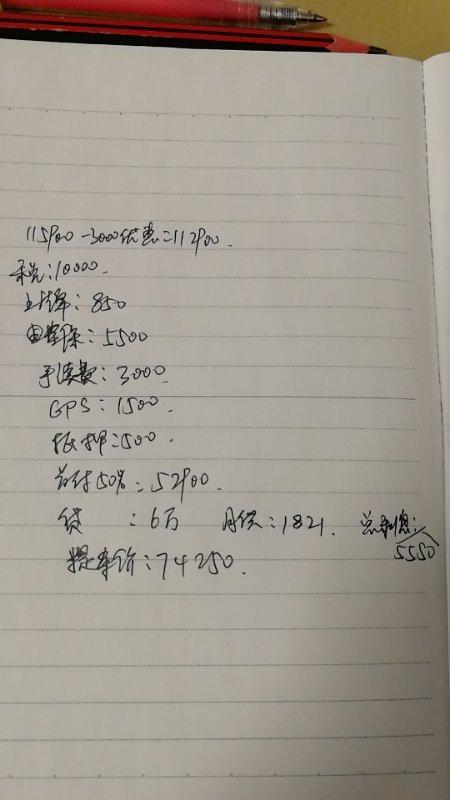 115900-3000优惠=112900.
税:10000.
上牌:850
保险:5500
手续费:3000.
GPS:1500.
抵押:500.
首付50%:52900.
贷:6万 月供:1821. 总利息:5550
提车价:74250.